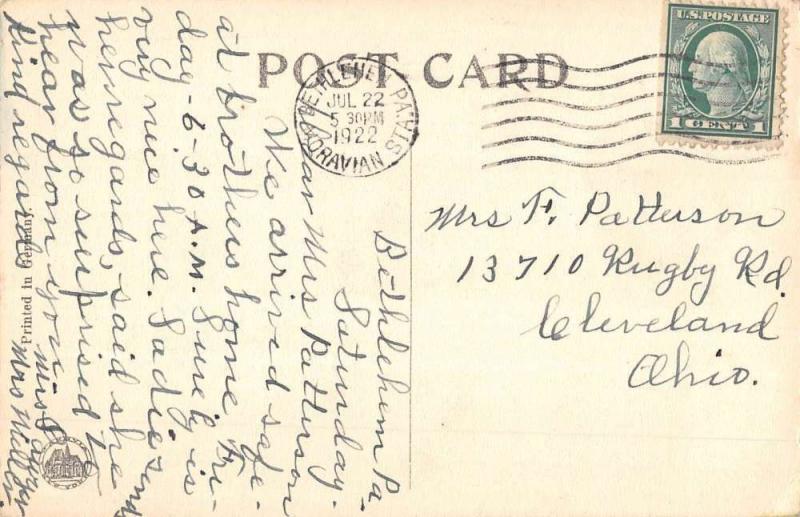 POST CARD
U.S. POSTAGE
1 CENT 1
BETHLEHEM, PA.
JUL 22
5 30PM
1922
MORAVIAN STA.
Mrs F. Patterson
13710 Rugby Rd.
Cleveland
Ohio.
Bethlehem Pa
Saturday.
Dear Mrs Patterson
We arrived safe
at brothers home Fri-
day - 6-30 A.M. Sure it is
very nice here. Sadie send
her regards, said she
was so surprised to
hear from you.
Kind regards
Mrs
Mrs
Printed in Germany.